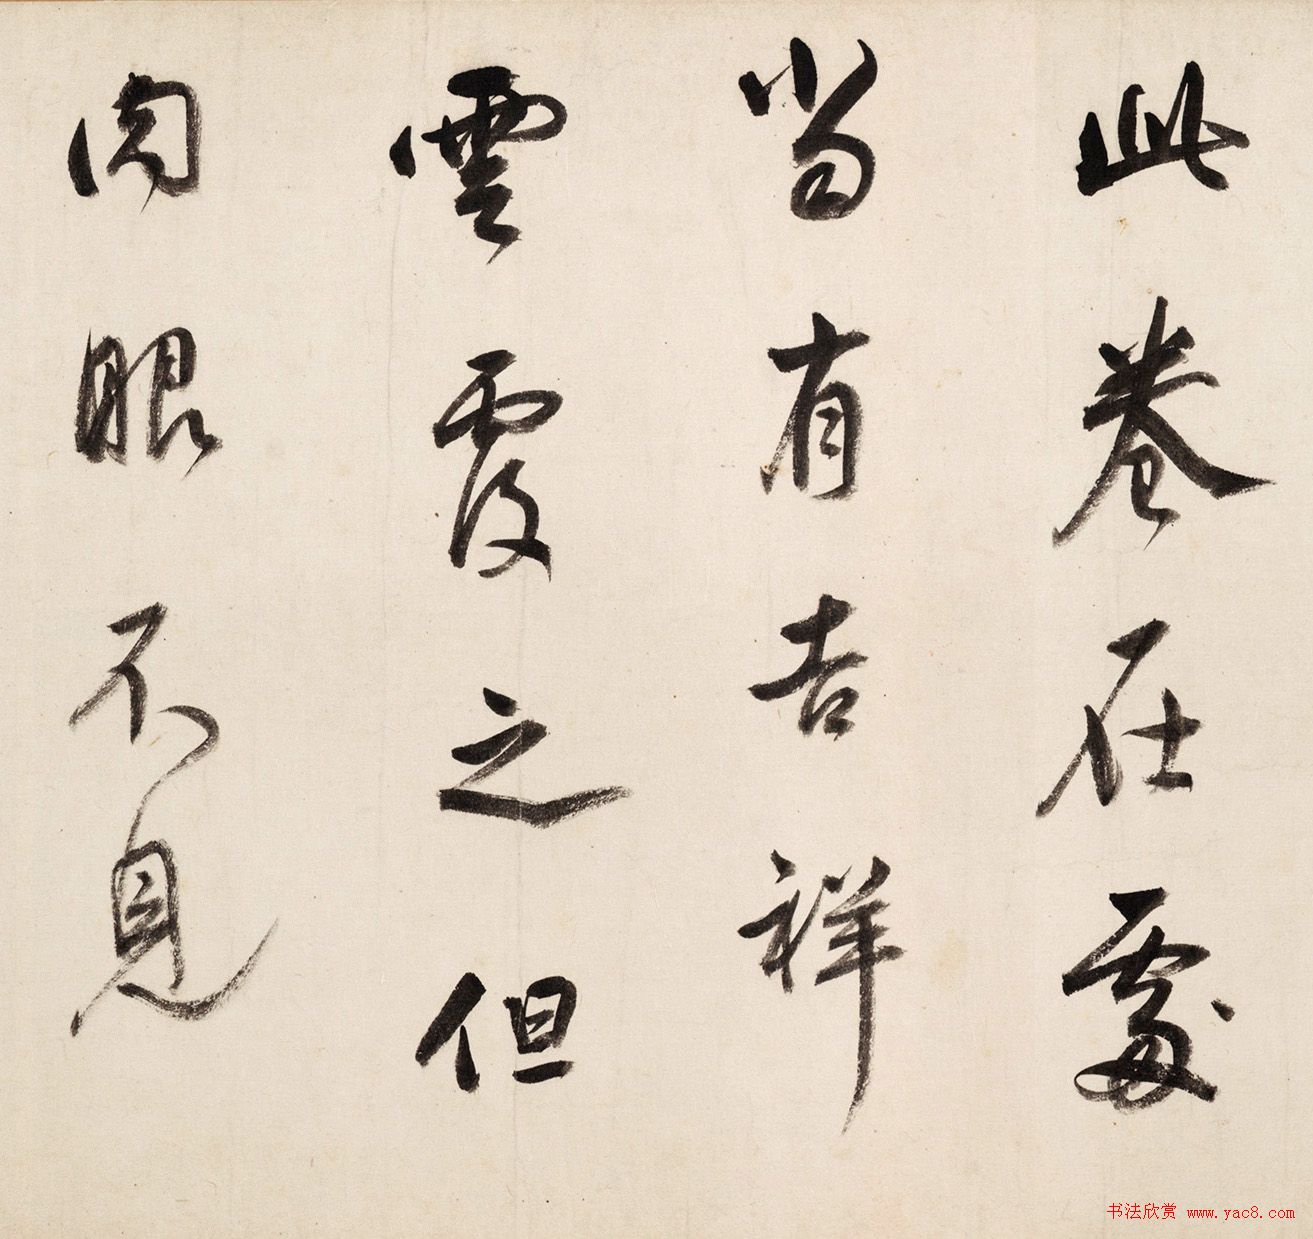 此卷在處
當有吉祥
雲覆之但
肉眼不見
书法欣赏 www.yac8.com